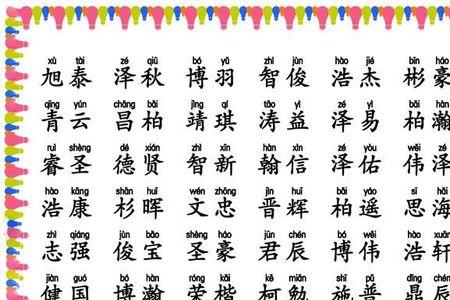 xù tài zé qiū bó yǔ zhì jùn hào jié bīn háo
旭泰 泽秋 博羽 智俊 浩杰 彬豪
qīng yún chāng bǎi jìng qí tāo yì zé yì bǎi hàn
青云 昌柏 靖琪 涛益 泽易 柏瀚
ruì shèng dé xián zhì xīn hàn xìn zé yòu wěi zé
睿圣 德贤 智新 翰信 泽佑 伟泽
hào kāng shān huī wén zhōng jìn huī bǎi yáo sī hǎi
浩康 杉晖 文忠 晋辉 柏遥 思海
zhì qiáng jùn bǎo shèng háo jūn chén bó wěi hào xuān
志强 俊宝 圣豪 君辰 博伟 浩轩
jiàn guó bó hàn róng kǎi kē miǎn shī pǔ dǐng chén
健国 博瀚 荣楷 柯勉 施普 鼎辰